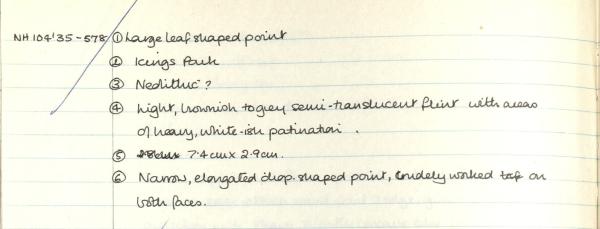 NH 104'35-578 ① Large leaf shaped point
② Icings Park
③ Neolithic?
④ Light, brownish to grey semi-translucent flint with areas
of heavy, white-ish patination.
⑤ 7.4cm x 2.9cm.
⑥ Narrow, elongated drop-shaped point, crudely worked on
both faces.